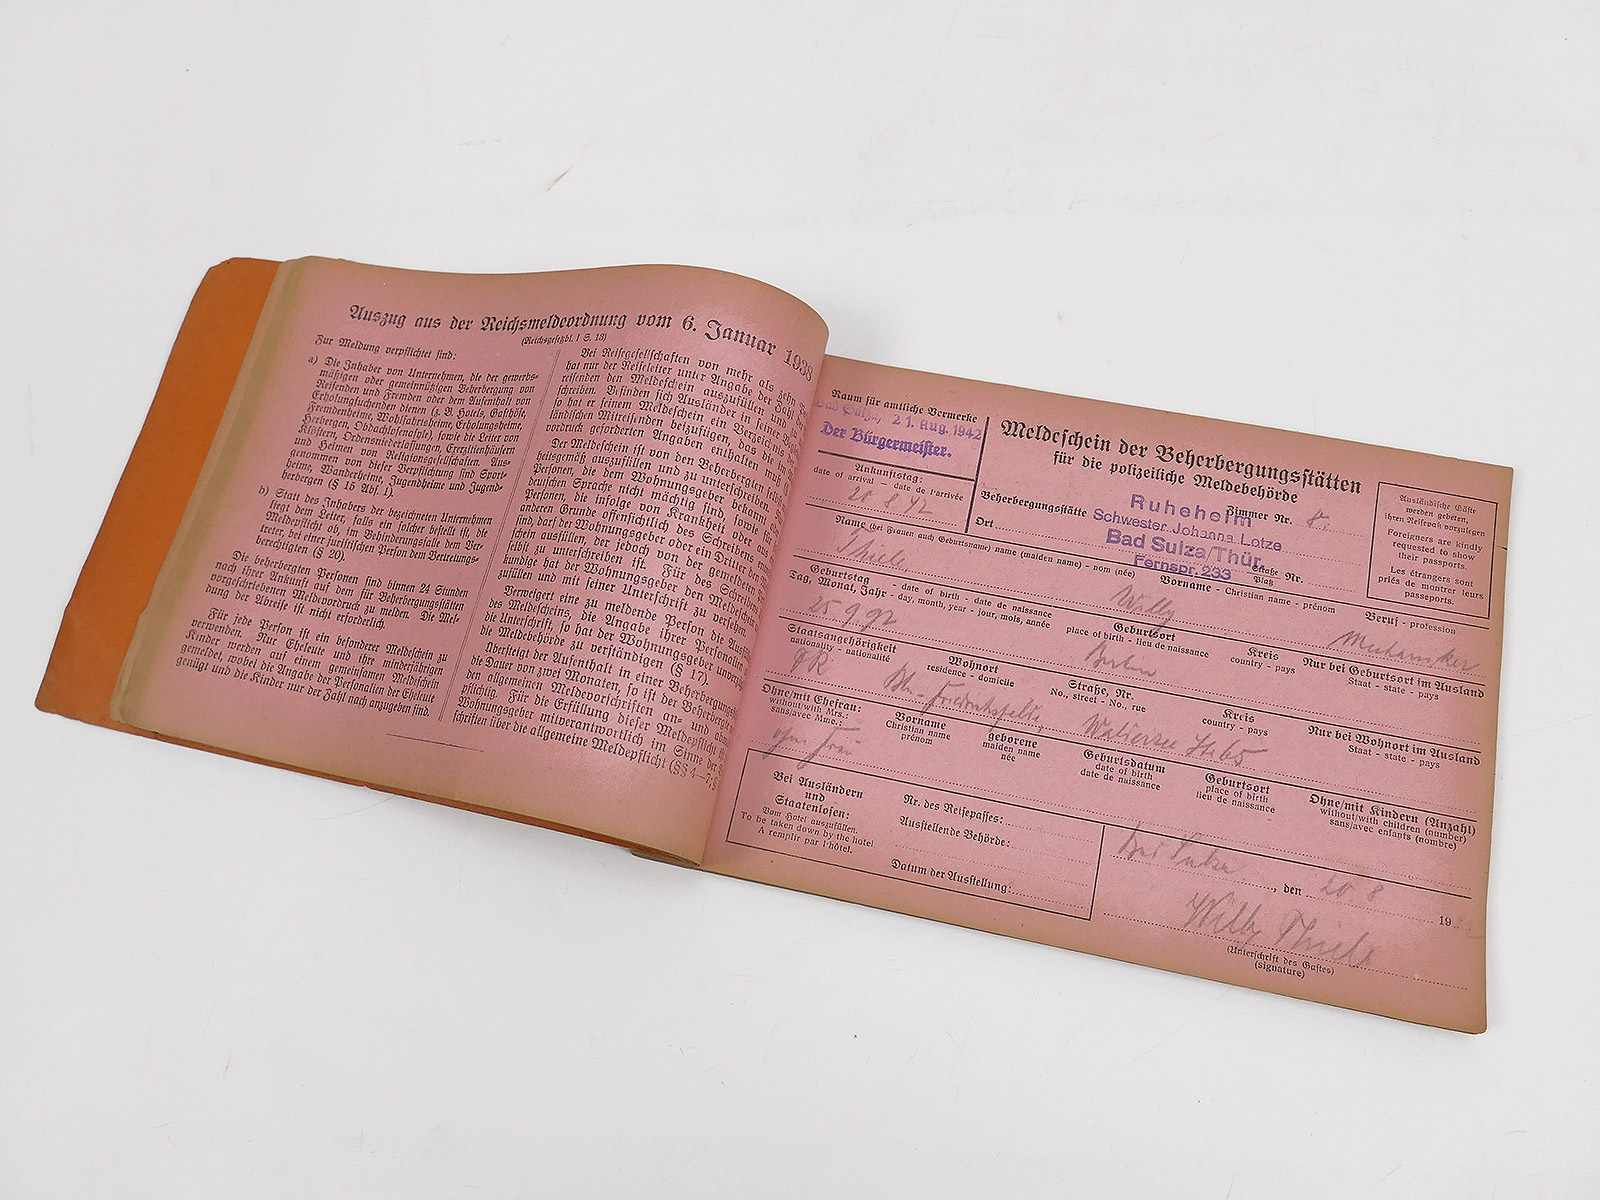 Auszug aus der Reichsmeldeordnung vom 6. Januar 1938
(Reichsgesetzbl. I S. 13)
Zur Meldung verpflichtet sind:
a) Die Inhaber von Unternehmen, die der gewerbs-
mäßigen oder gemeinnützigen Beherbergung von
Reisenden und Fremden oder dem Aufenthalt von
Erholungsuchenden dienen (z. B. Hotels, Gasthöfe,
Fremdenheime, Wohlfahrtsheime, Erholungsheime,
Herbergen, Obdachlosenasyle), sowie die Leiter von
Klöstern, Ordensniederlassungen, Exerzitienhäusern
und Heimen von Religionsgesellschaften. Aus-
genommen von dieser Verpflichtung sind Sport-
heime, Wanderheime, Jugendheime und Jugend-
herbergen (§ 15 Abs. 1).
b) Statt des Inhabers der bezeichneten Unternehmen
liegt dem Leiter, falls ein solcher bestellt ist, die
Meldepflicht ob, im Behinderungsfalle dem Ver-
treter, bei einer juristischen Person dem Vertretungs-
berechtigten (§ 20).
Die beherbergten Personen sind binnen 24 Stunden
nach ihrer Ankunft auf dem für Beherbergungsstätten
vorgeschriebenen Meldevordruck zu melden. Die Mel-
dung der Abreise ist nicht erforderlich.
Für jede Person ist ein besonderer Meldeschein zu
verwenden. Nur Eheleute und ihre minderjährigen
Kinder werden auf einem gemeinsamen Meldeschein
gemeldet, wobei die Angabe der Personalien der Eheleute
genügt und die Kinder nur der Zahl nach anzugeben sind.
Bei Reisegesellschaften von mehr als zehn
hat nur der Reiseleiter unter Angabe der Zahl
reisenden den Meldeschein auszufüllen und
schreiben. Befinden sich Ausländer in seiner
so hat er seinem Meldeschein ein Verzeichnis
ländischen Mitreisenden beizufügen, das die im
vordruck geforderten Angaben enthalten muß
Der Meldeschein ist von den Beherbergten
heitsgemäß auszufüllen und zu unterschreiben
Personen, die dem Wohnungsgeber bekannt
deutschen Sprache nicht mächtig sind, sowie für
Personen, die infolge von Krankheit oder aus
anderen Grunde offensichtlich des Schreibens
sind, darf der Wohnungsgeber oder ein Dritter den
schein ausfüllen, der jedoch von der gemeldeten
selbst zu unterschreiben ist. Für des Schreibens
kundige hat der Wohnungsgeber den Meldeschein
zufüllen und mit seiner Unterschrift zu versehen.
Verweigert eine zu meldende Person die
des Meldescheins, die Angabe ihrer Personalien
die Unterschrift, so hat der Wohnungsgeber
die Meldebehörde zu verständigen (§ 17).
Übersteigt der Aufenthalt in einer Beherbergungs
die Dauer von zwei Monaten, so ist der Beherbergte
den allgemeinen Meldevorschriften an- und
pflichtig. Für die Erfüllung dieser Meldepflicht
Wohnungsgeber mitverantwortlich im Sinne der
schriften über die allgemeine Meldepflicht (§§ 4–7,
Raum für amtliche Vermerke
Bad Sulza, 21. Aug. 1942
Der Bürgermeister.
Ankunftstag:
date of arrival – date de l'arrivée
20 8 42
Meldeschein der Beherbergungsstätten
für die polizeiliche Meldebehörde
Beherbergungsstätte Zimmer Nr. 8
Ruheheim
Schwester Johanna Lotze
Bad Sulza/Thür.
Fernspr. 233
Ort Straße Nr.
Platz
Ausländische Gäste
werden gebeten,
ihren Reisepaß vorzulegen
Foreigners are kindly
requested to show
their passports.
Les étrangers sont
priés de montrer leurs
passeports.
Name (bei Frauen auch Geburtsname) name (maiden name) - nom (née) Vorname - Christian name - prénom Beruf - profession
Thiele Willy Mechaniker
Geburtstag - date of birth - date de naissance
Tag, Monat, Jahr - day, month, year - jour, mois, année
Geburtsort
place of birth - lieu de naissance
Kreis
country - pays
Nur bei Geburtsort im Ausland
Staat - state - pays
25 9 92 Berlin
Staatsangehörigkeit
nationality - nationalité
Wohnort
residence - domicile
Straße, Nr.
No., street - No., rue
Kreis
country - pays
Nur bei Wohnort im Ausland
Staat - state - pays
DR Bln-Friedrichsfelde,
Ohne/mit Ehefrau:
without/with Mrs.:
sans/avec Mme.:
Vorname
Christian name
prénom
geborene
maiden name
née
Geburtsdatum
date of birth
date de naissance
Geburtsort
place of birth
lieu de naissance
Ohne/mit Kindern (Anzahl)
without/with children (number)
sans/avec enfants (nombre)
ohne Frau
Bei Ausländern
und
Staatenlosen:
Vom Hotel auszufüllen.
To be taken down by the hotel
A remplir par l'hôtel.
Nr. des Reisepasses:
Ausstellende Behörde:
Datum der Ausstellung:
Bad Sulza, den 20. 8 19
Willy Thiele
(Unterschrift des Gastes)
(signature)